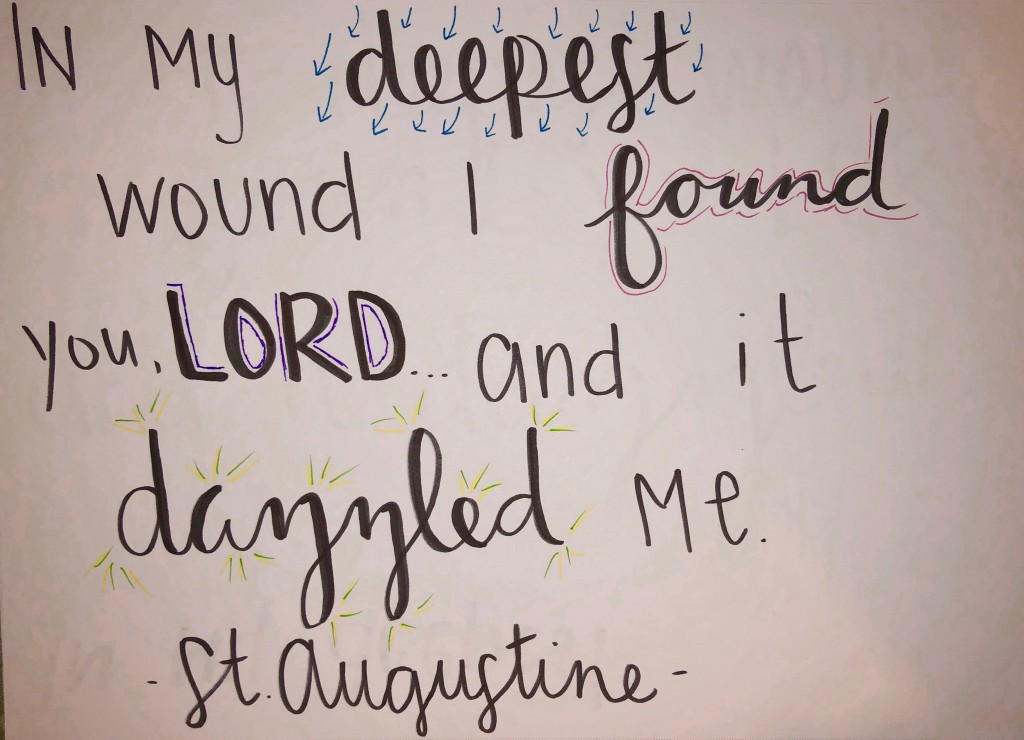 IN My deepest
wound I found
you, LORD... and it
dazzled Me.
- St. Augustine -